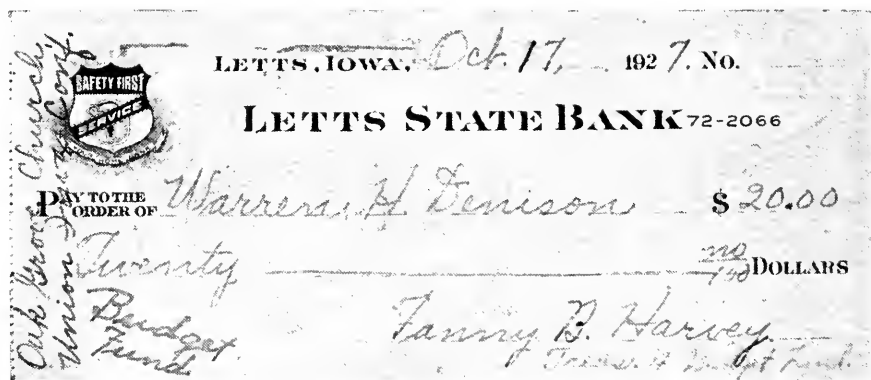 Oak Grove Church,
Union Iowa Conf.
SAFETY FIRST
SERVICE
LETTS, IOWA, Oct. 17, 1927. No.
LETTS STATE BANK 72-2066
PAY TO THE ORDER OF Warren H Denison $ 20.00
Twenty no/100 DOLLARS
Budget
Fund
Fanny B. Harvey
Treas. of Budget Fund.